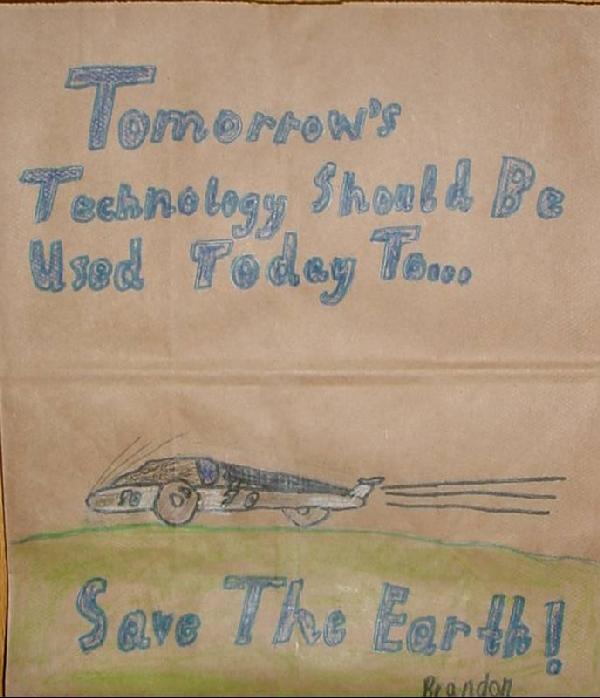 Tomorrow's
Technology Should Be
Used Today To...
Save The Earth!
Brandon